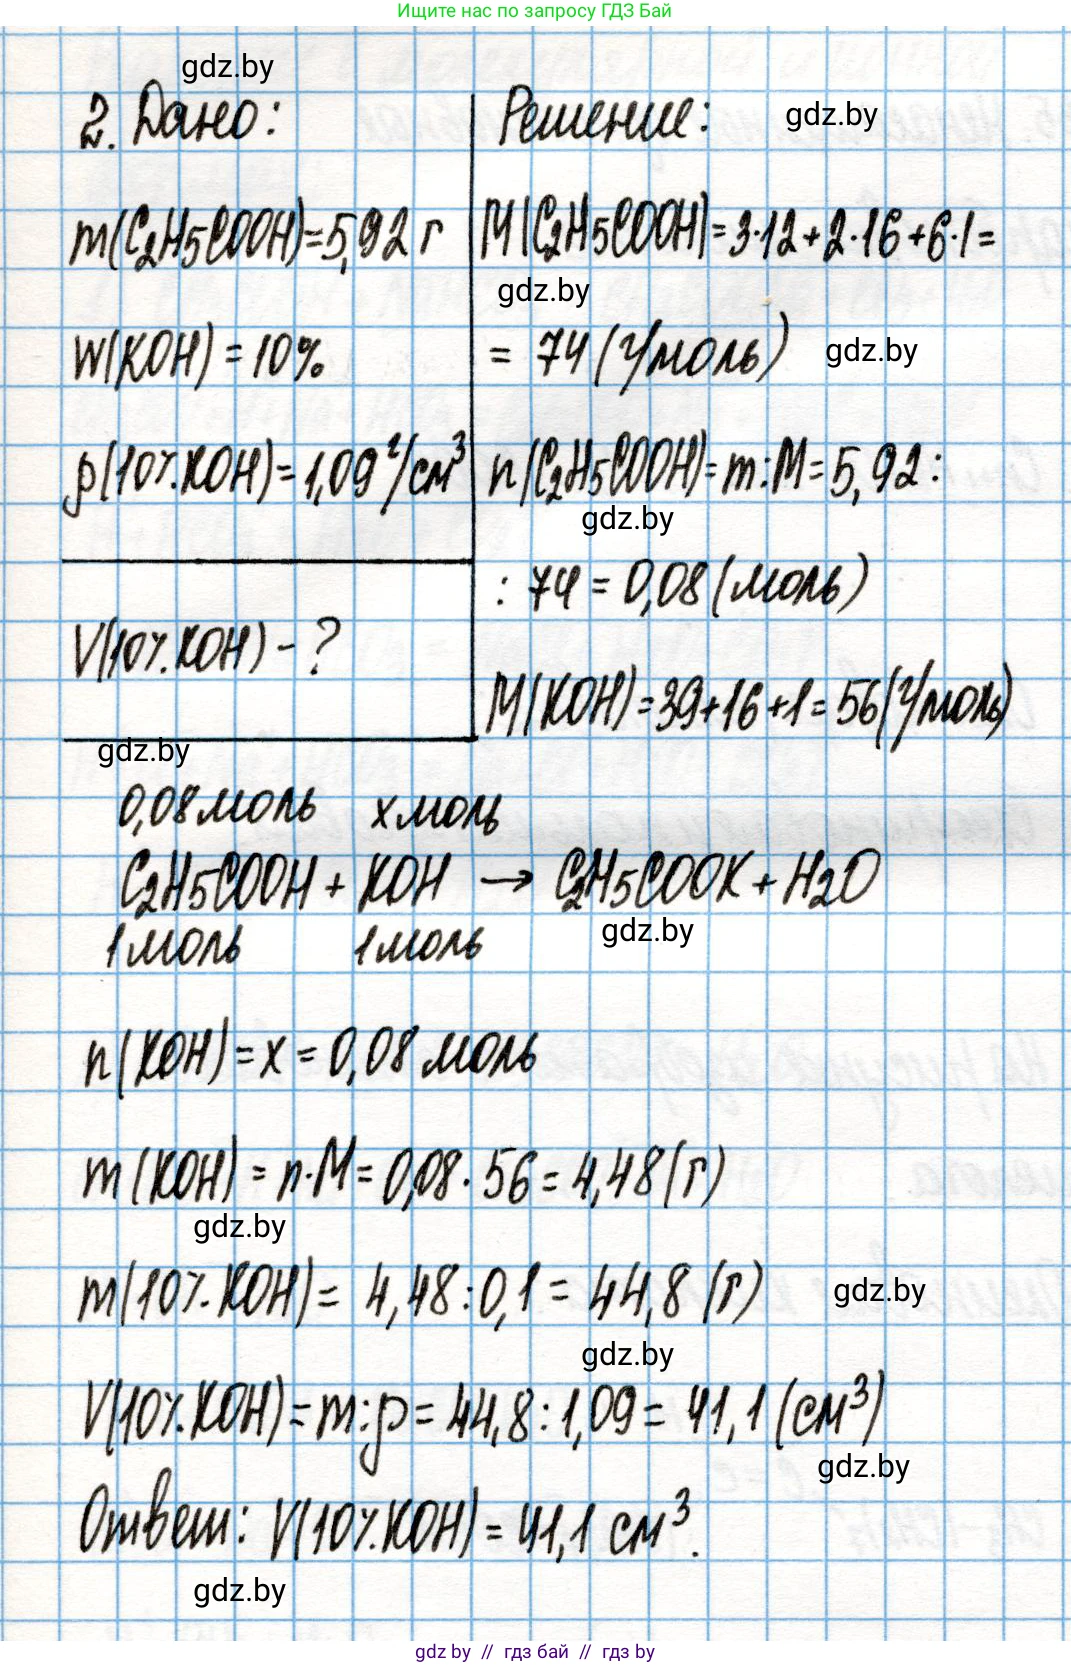 Ищите нас по запросу ГДЗ Бай
gdz.by
2. Дано:
Решение:
gdz.by
m(C₂H₅COOH)=5,92 г
M(C₂H₅COOH)=3·12+2·16+6·1=
gdz.by
w(KOH) = 10%
= 74 (г/моль)
gdz.by
ρ(10%.KOH)=1,09 г/см³
n(C₂H₅COOH)=m:M=5,92:
gdz.by
: 74 = 0,08 (моль)
V(10%.KOH) - ?
M(KOH)=39+16+1=56(г/моль)
gdz.by
0,08 моль x моль
C₂H₅COOH + KOH → C₂H₅COOK + H₂O
gdz.by
1 моль 1 моль
n(KOH) = x = 0,08 моль
m(KOH) = n·M = 0,08·56 = 4,48 (г)
gdz.by
m(10%.KOH) = 4,48:0,1 = 44,8 (г)
gdz.by
gdz.by
V(10%.KOH) = m:ρ = 44,8:1,09 = 41,1 (см³)
gdz.by
Ответ: V(10%.KOH) = 41,1 см³.
gdz.by
gdz by // гдз бай // gdz by